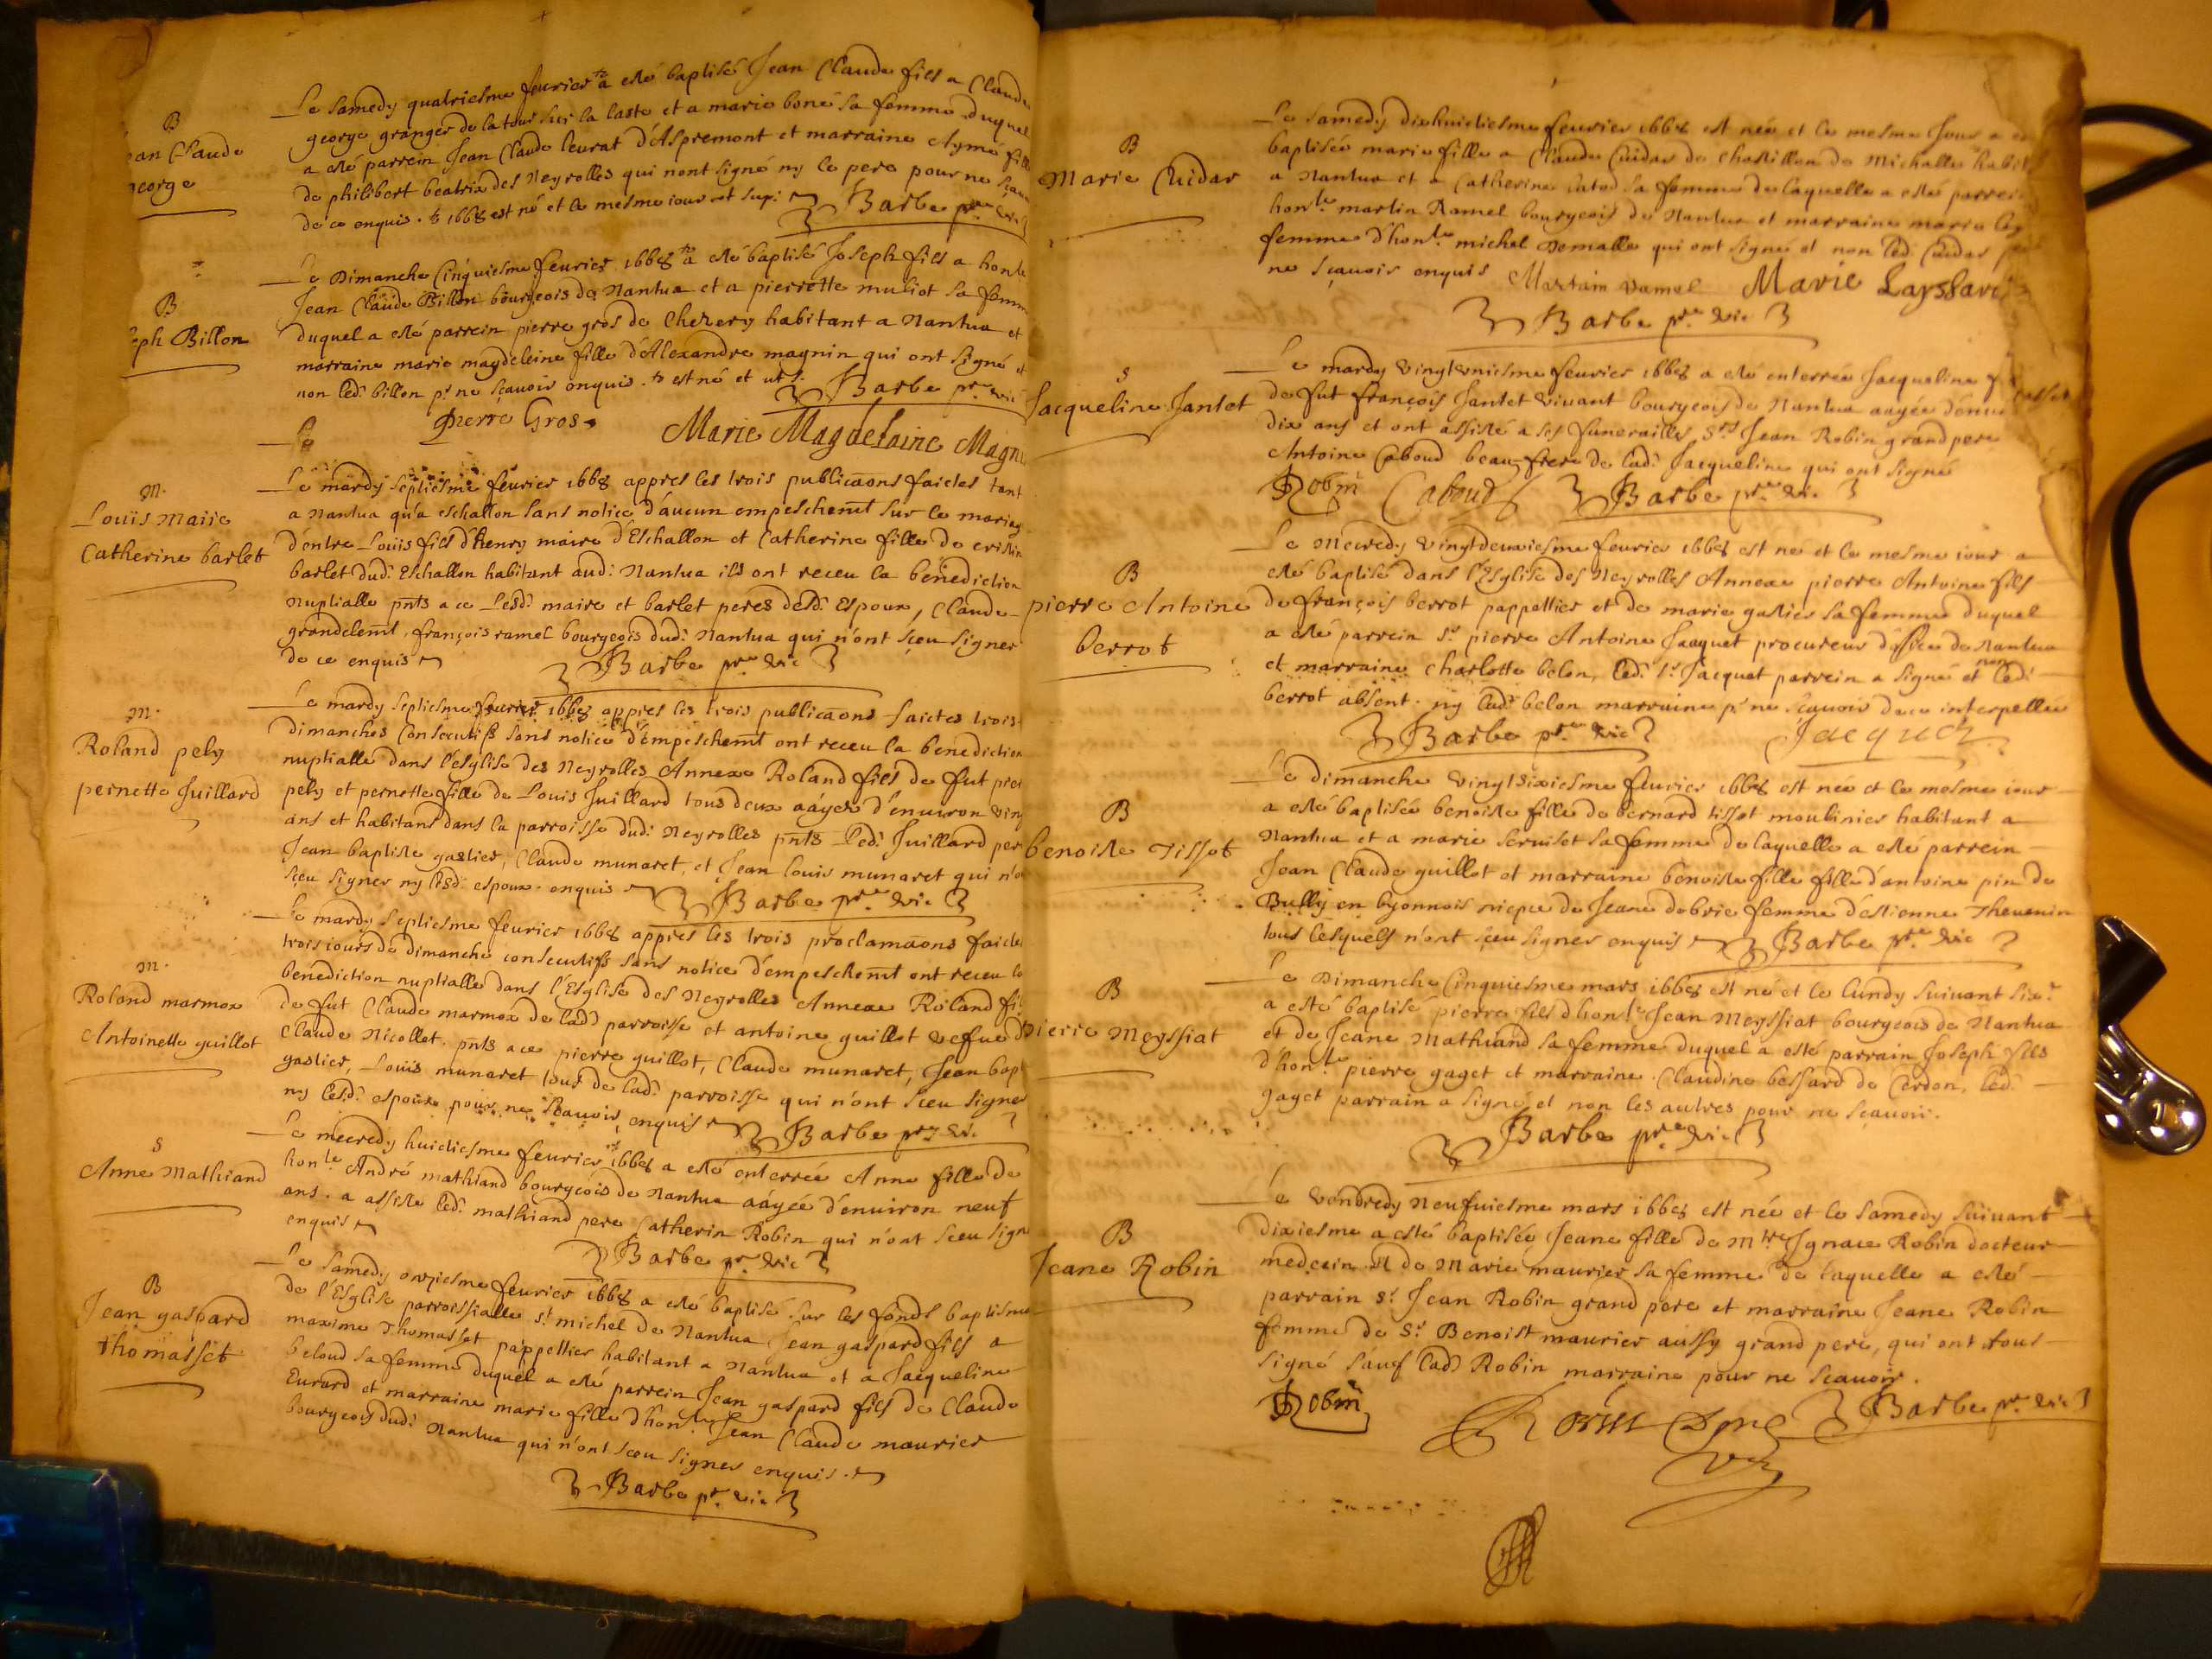 B
Jean Claude
george
Le samedy quatriesme feurier a esté baptisé Jean Claude fils a Claude
george granger de la tour sur la laste et a marie boné sa femme duquel
a esté parrein Jean Claude leurat d'Aspremont et marraine Aymé fille
de philibert beatrix des Neyrolles qui nont signé ny le pere pour ne sçauoir
de ce enquis. 1668 est né et le mesme iour ut sup:
Barbe ptre vic
B
Joseph Billon
Le Dimanche Cinquiesme feurier 1668 a esté baptisé Joseph fils a honble
Jean Claude Billon bourgeois de Nantua et a pierrette muliot sa femme
duquel a esté parrein pierre gros de Chezery habitant a Nantua et
marraine marie magdeleine fille d'Alexandre magnin qui ont signé et
non led: billon pr ne sçauoir enquis. est né et ut s.
Barbe ptre vic
Pierre Gros Marie Magdelaine Magn
Le
m.
Louis Maire
Catherine barlet
Le mardy septiesme feurier 1668 appres les trois publicaons faictes tant
a Nantua qu'a eschallon sans notice d'aucun empeschemt sur le mariag
d'entre Louis fils d'henry maire d'Eschallon et Catherine fille de cristin
barlet dud: Eschallon habitant aud: Nantua ils ont receu la benediction
Nuptialle pnts a ce Lesd: maire et barlet peres desd: Espoux, Claude
grandclemt, françois ramel bourgeois dud: Nantua qui n'ont sçeu signer
de ce enquis
Barbe ptre vic
m.
Roland pely
pernette Juillard
Le mardy septiesme feurier 1668 appres les trois publicaons faictes trois
dimanches Consecutifs sans notice d'empeschemt ont receu la benediction
nuptialle dans l'esglise des Neyrolles Annexe Roland fils de fut
pely et pernette fille de Louis Juillard tous deux aâgés d'enuiron ving
ans et habitans dans la parroisse dud: Neyrolles pnts led: Juillard per
Jean baptiste gastier, Claude munaret, et Jean louis munaret qui n'on
sçeu signer ny lesd: espoux enquis
Barbe ptre vic
m.
Roland marmox
Antoinette guillot
Le mardy septiesme feurier 1668 appres les trois proclamaons faicte
trois iours de dimanche consecutifs sans notice d'empeschemt ont receu la
benediction nuptialle dans l'Esglise des Neyrolles Annexe Roland fi
de fut Claude marmox de lad: parroisse et antoine guillot vefue d
Claude Nicollet. pnts a ce pierre guillot, Claude munaret, Jean bapt
gastier, Louis munaret tous de lad: parroisse qui n'ont sceu signer
ny lesd: espoux pour ne sçauoir, enquis
Barbe ptre vic
S
Anne Mathiand
Le mecredy huictiesme feurier 1668 a esté enterrée Anne fille de
honle André mathiand bourgeois de Nantua aâgée d'enuiron neuf
ans. a assisté led: mathiand pere Catherin Robin qui n'ont sceu sign
enquis
Barbe pr. vic
B
Jean gaspard
thomasset
Le samedy onziesme feurier 1668 a esté baptisé sur les fonds baptisma
de l'Esglise parroissialle st michel de Nantua Jean gaspard fils a
maxime Thomasset pappettier habitant a Nantua et a Jacqueline
beloud sa femme duquel a esté parrein Jean gaspard fils de Claude
Eurard et marraine marie fille d'honle Jean Claude maurier
bourgeois dud: Nantua qui n'ont sceu signer enquis.
Barbe pr. vic
B
Marie Cuidar
Le samedy dixhuictiesme feurier 1668 est née et le mesme Jour a
baptisée marie fille a Claude Cuidar de Chastillon de Michalle habit
a Nantua et a Catherine sa femme de laquelle a esté parrein
honle martin Ramel bourgeois de Nantua et marraine marie
femme d'honle michel Demalle qui ont signé et non led: Cuidar
ne sçauoir enquis Martain ramel Marie
Barbe ptre vic
S
Jacqueline Jantet
Le mardy vingtvniesme feurier 1668 a esté enterrée Jacqueline
de fut françois Jantet viuant bourgeois de Nantua aagée d'enui
dix ans et ont assisté a ses funerailles Srs Jean Robin grand pere
Antoine Caboud beau frere de lad: Jacqueline qui ont signé
Robin Caboud Barbe ptre vic
B
pierre Antoine
berrot
Le Mecredy vingtdeuxiesme feurier 1668 est né et le mesme iour a
esté baptisé dans l'Esglise des Neyrolles Annexe pierre Antoine fils
de françois berrot pappettier et de marie gastier sa femme duquel
a esté parrein sr pierre Antoine Jacquet procureur d'office de Nantua
et marraine Charlotte belon, led: sr Jacquet parrein a signé et non led:
berrot absent. ny lad: belon marraine pr ne sçauoir de ce interpellée
Barbe ptre vic Jacquet
B
benoiste Tissot
Le dimanche vingtsixiesme feurier 1668 est née et le mesme iour
a esté baptisée benoiste fille de bernard tissot moulinier habitant a
Nantua et a marie seruiset sa femme de laquelle a esté parrein
Jean Claude guillot et marraine benoiste fille fille d'antoine pin de
Bully en Lyonnois niepce de Jeane dobrie femme d'estienne Theuenin
tous lesquels n'ont sçeu signer enquis
Barbe ptre vic
B
Pierre Meyssiat
Le Dimanche Cinquiesme mars 1668 est né et le lundy suiuant sixe
a esté baptisé pierre fils d'honle Jean Meyssiat bourgeois de Nantua
et de Jeane Mathiand sa femme duquel a esté parrain Joseph fils
d'honle pierre gaget et marraine Claudine bessard de Cerdon, led:
gaget parrain a signé et non les autres pour ne sçauoir.
Barbe ptre vic
B
Jeane Robin
Le vendredy Neufuiesme mars 1668 est née et le samedy suiuant
dixiesme a esté baptisée Jeane fille de Mtre Ignace Robin docteur
medecin et de Marie maurier sa femme de laquelle a esté
parrain sr Jean Robin grand pere et marraine Jeane Robin
femme de Sr Benoist maurier aussy grand pere, qui ont tous
signé sauf lad: Robin marraine pour ne sçauoir.
Robin Robin Barbe pr. vic